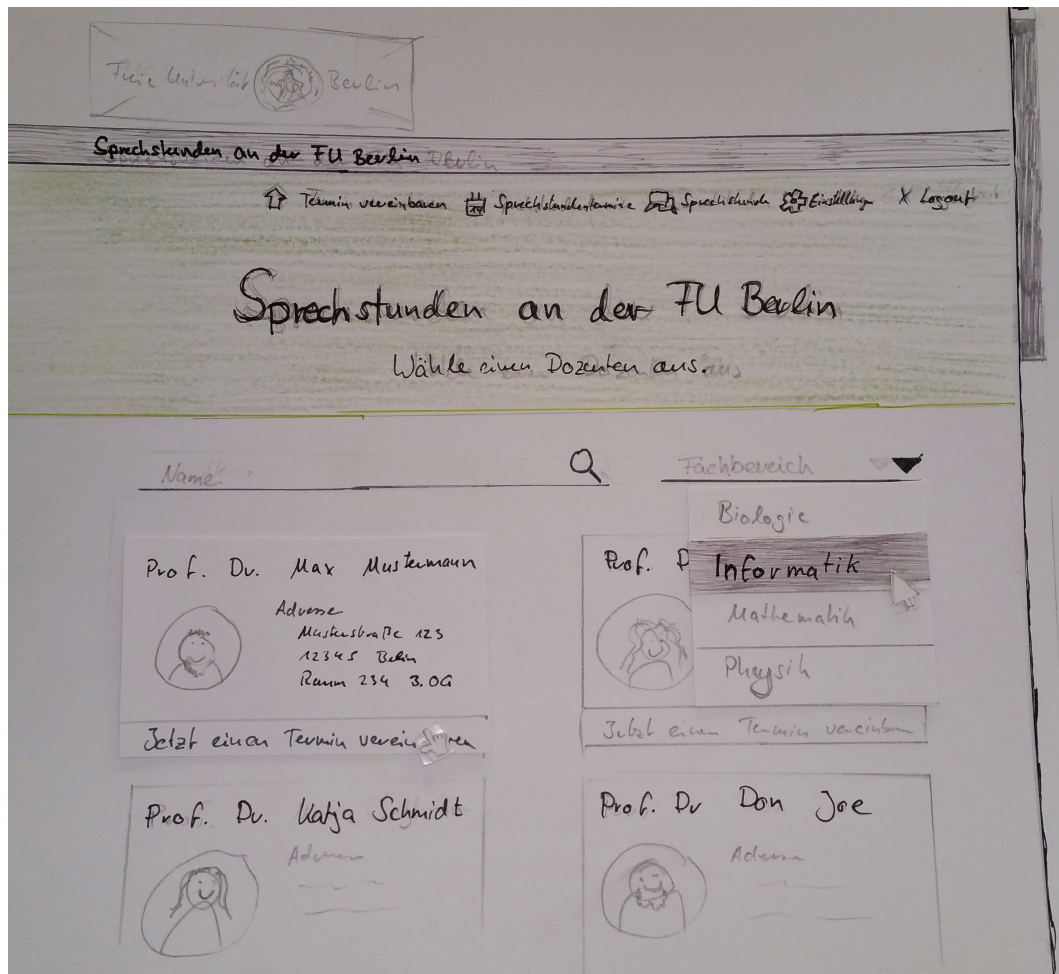 Freie Universität Berlin
Sprechstunden an der FU Berlin
Termin vereinbaren Sprechstundentermine Sprechstunde Einstellungen X Logout
Sprechstunden an der FU Berlin
Wähle einen Dozenten aus.
Name Fachbereich
Biologie
Informatik
Mathematik
Physik
Prof. Dr. Max Mustermann
Adresse
Musterstraße 123
12345 Berlin
Raum 234 3. OG
Jetzt einen Termin vereinbaren
Prof.
Jetzt einen Termin vereinbaren
Prof. Dr. Katja Schmidt
Adresse
Prof. Dr Don Joe
Adresse